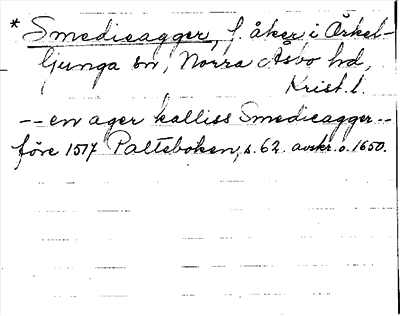 * Smedieagger, f. åker i Örkel-
ljunga sn, Norra Åsbo hd,
Krist. l.
-- en ager kalliss Smedieagger --
före 1517 Palteboken, s. 62. avskr. o. 1650.